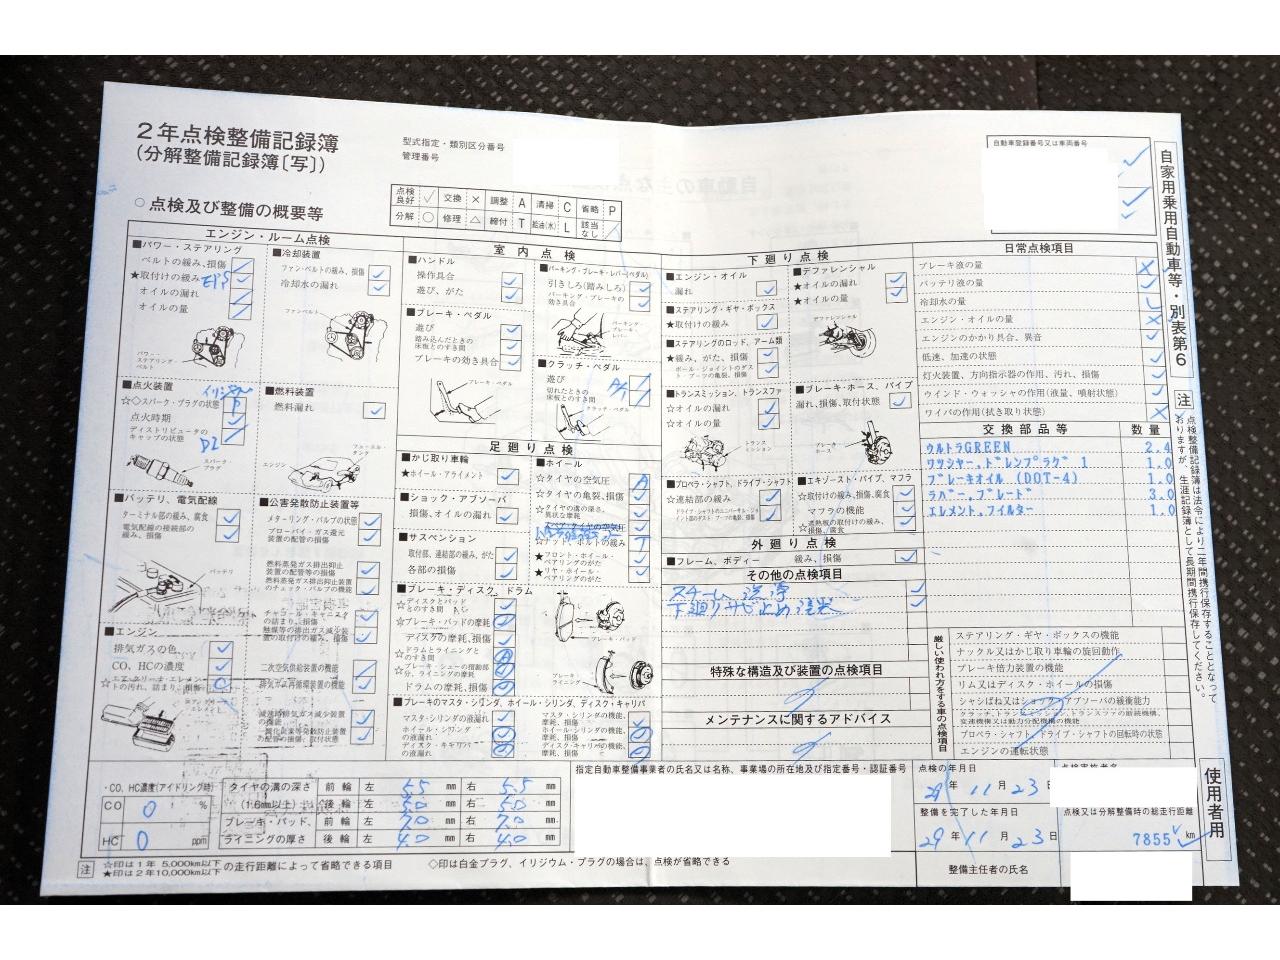 2年点検整備記録簿
(分解整備記録簿〔写〕)
型式指定・類別区分番号
管理番号
自動車登録番号又は車両番号
自家用乗用自動車等・別表第6
点検良好 交換 × 調整 A 清掃 C 省略 P
分解 ○ 修理 △ 締付 T 給油(水) L 該当なし
○点検及び整備の概要等
エンジン・ルーム点検
■パワー・ステアリング
ベルトの緩み、損傷
★取付けの緩み EPS
オイルの漏れ
オイルの量
パワー・ステアリング・ベルト
■冷却装置
ファン・ベルトの緩み、損傷
冷却水の漏れ
ファンベルト
■点火装置
☆◇スパーク・プラグの状態
点火時期
ディストリビュータのキャップの状態
スパークプラグ
■燃料装置
燃料漏れ
フューエル・タンク
エンジン
■バッテリ、電気配線
ターミナル部の緩み、腐食
電気配線の接続部の緩み、損傷
バッテリ
■公害発散防止装置等
メターリング・バルブの状態
ブローバイ・ガス還元装置の配管の損傷
燃料蒸発ガス排出抑止装置の配管等の損傷
燃料蒸発ガス排出抑止装置のチェック・バルブの機能
チャコール・キャニスタの詰まり、損傷
触媒等の排出ガス減少装置の取付けの緩み、損傷
二次空気供給装置の機能
排気ガス再循環装置の機能
減速時排気ガス減少装置の機能
一酸化炭素等発散防止装置の配管の損傷、取付状態
■エンジン
排気ガスの色
CO、HCの濃度
☆エア・クリーナ・エレメントの汚れ、詰まり、損傷
室内点検
■ハンドル
操作具合
遊び、がた
■ブレーキ・ペダル
遊び
踏み込んだときの床板とのすき間
ブレーキの効き具合
ブレーキ・ペダル
■パーキング・ブレーキ・レバー(ペダル)
引きしろ(踏みしろ)
パーキング・ブレーキの効き具合
パーキング・ブレーキ・レバー
■クラッチ・ペダル
遊び
切れたときの床板とのすき間
クラッチ・ペダル
足廻り点検
■かじ取り車輪
★ホイール・アライメント
■ショック・アブソーバ
損傷、オイルの漏れ
■サスペンション
取付部、連結部の緩み、がた
各部の損傷
■ホイール
☆タイヤの空気圧
☆タイヤの亀裂、損傷
☆タイヤの溝の深さ、異状な摩耗
スペア・タイヤの空気圧
☆ナット、ボルトの緩み
★フロント・ホイール・ベアリングのがた
★リヤ・ホイール・ベアリングのがた
■ブレーキ・ディスク、ドラム
☆ディスクとパッドとのすき間
☆ブレーキ・パッドの摩耗
ディスクの摩耗、損傷
☆ドラムとライニングとのすき間
☆ブレーキ・シューの摺動部分、ライニングの摩耗
ドラムの摩耗、損傷
ブレーキ・パッド
ブレーキ・ライニング
■ブレーキのマスタ・シリンダ、ホイール・シリンダ、ディスク・キャリパ
マスタ・シリンダの液漏れ
ホイール・シリンダの液漏れ
ディスク・キャリパの液漏れ
マスタ・シリンダの機能、摩耗、損傷
ホイール・シリンダの機能、摩耗、損傷
ディスク・キャリパの機能、摩耗、損傷
下廻り点検
■エンジン・オイル
漏れ
■ステアリング・ギヤ・ボックス
★取付けの緩み
■ステアリングのロッド、アーム類
★緩み、がた、損傷
ボール・ジョイントのダスト・ブーツの亀裂、損傷
■トランスミッション、トランスファ
☆オイルの漏れ
☆オイルの量
トランスミッション
■プロペラ・シャフト、ドライブ・シャフト
☆連結部の緩み
ドライブ・シャフトのユニバーサル・ジョイント部のダスト・ブーツの亀裂、損傷
■デファレンシャル
★オイルの漏れ
★オイルの量
デファレンシャル
■ブレーキ・ホース、パイプ
漏れ、損傷、取付状態
ブレーキ・ホース
■エキゾースト・パイプ、マフラ
☆取付けの緩み、損傷、腐食
マフラの機能
☆遮熱板の取付けの緩み、損傷、腐食
外廻り点検
■フレーム、ボディー 緩み、損傷
その他の点検項目
スチーム洗浄
下廻りサビ止め塗装
特殊な構造及び装置の点検項目
メンテナンスに関するアドバイス
日常点検項目
ブレーキ液の量
バッテリ液の量
冷却水の量
エンジン・オイルの量
エンジンのかかり具合、異音
低速、加速の状態
灯火装置、方向指示器の作用、汚れ、損傷
ウインド・ウォッシャの作用(液量、噴射状態)
ワイパの作用(拭き取り状態)
交換部品等 数量
ウルトラGREEN 2.4
ワツシヤー、ドレンプラグ 1 1.0
ブレーキオイル (DOT-4) 1.0
ラバー、ブレード 3.0
エレメント、フイルター 1.0
厳しい使われ方をする車の点検項目
ステアリング・ギヤ・ボックスの機能
ナックル又はかじ取り車輪の旋回動作
ブレーキ倍力装置の機能
リム又はディスク・ホイールの損傷
シャシばね又はショック・アブソーバの緩衝能力
クラッチ、トランスミッション、トランスファの断続機構、変速機構又は動力分配機構の機能
プロペラ・シャフト、ドライブ・シャフトの回転時の状態
エンジンの運転状態
注 点検整備記録簿は法令により二年間携行保存することとなっておりますが、生涯記録簿として長期間携行保存してください。
使用者用
・CO、HC濃度(アイドリング時)
CO 0 %
HC 0 ppm
タイヤの溝の深さ 前輪 左 5.5 mm 右 5.5 mm
(1.6mm以上) 後輪 左 5.0 mm 右 5.0 mm
ブレーキ・パッド、 前輪 左 7.0 mm 右 7.0 mm
ライニングの厚さ 後輪 左 4.0 mm 右 4.0 mm
指定自動車整備事業者の氏名又は名称、事業場の所在地及び指定番号・認証番号
点検の年月日
29年 11月 23日
整備を完了した年月日
29年 11月 23日
点検又は分解整備時の総走行距離
7855 km
整備主任者の氏名
注 ☆印は1年 5,000km以下
★印は2年10,000km以下 の走行距離によって省略できる項目
◇印は白金プラグ、イリジウム・プラグの場合は、点検が省略できる